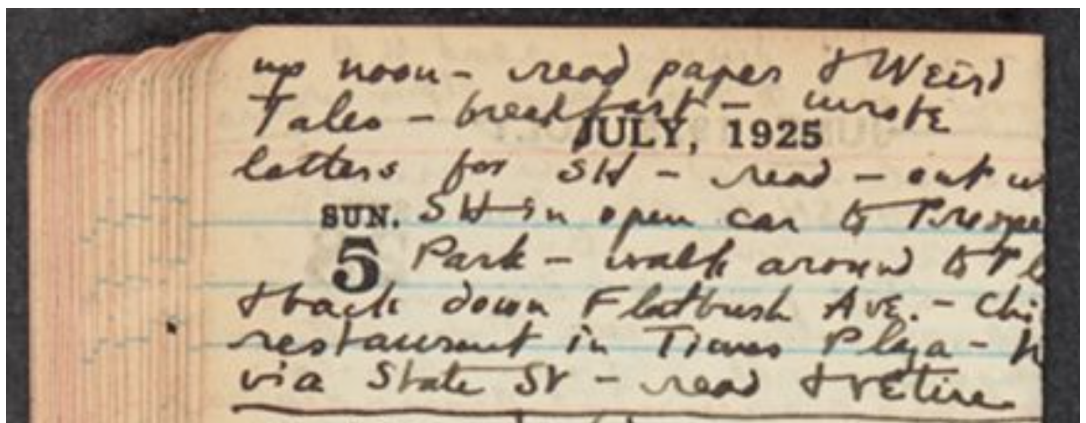 up noon - read paper & Weird
Tales - breakfast - wrote
JULY, 1925
letters for SH - read - out w
SUN. SH in open car to Prospe
5 Park - walk around to Pl
& back down Flatbush Ave. - Chi
restaurant in Times Plaza - h
via State St - read & retire